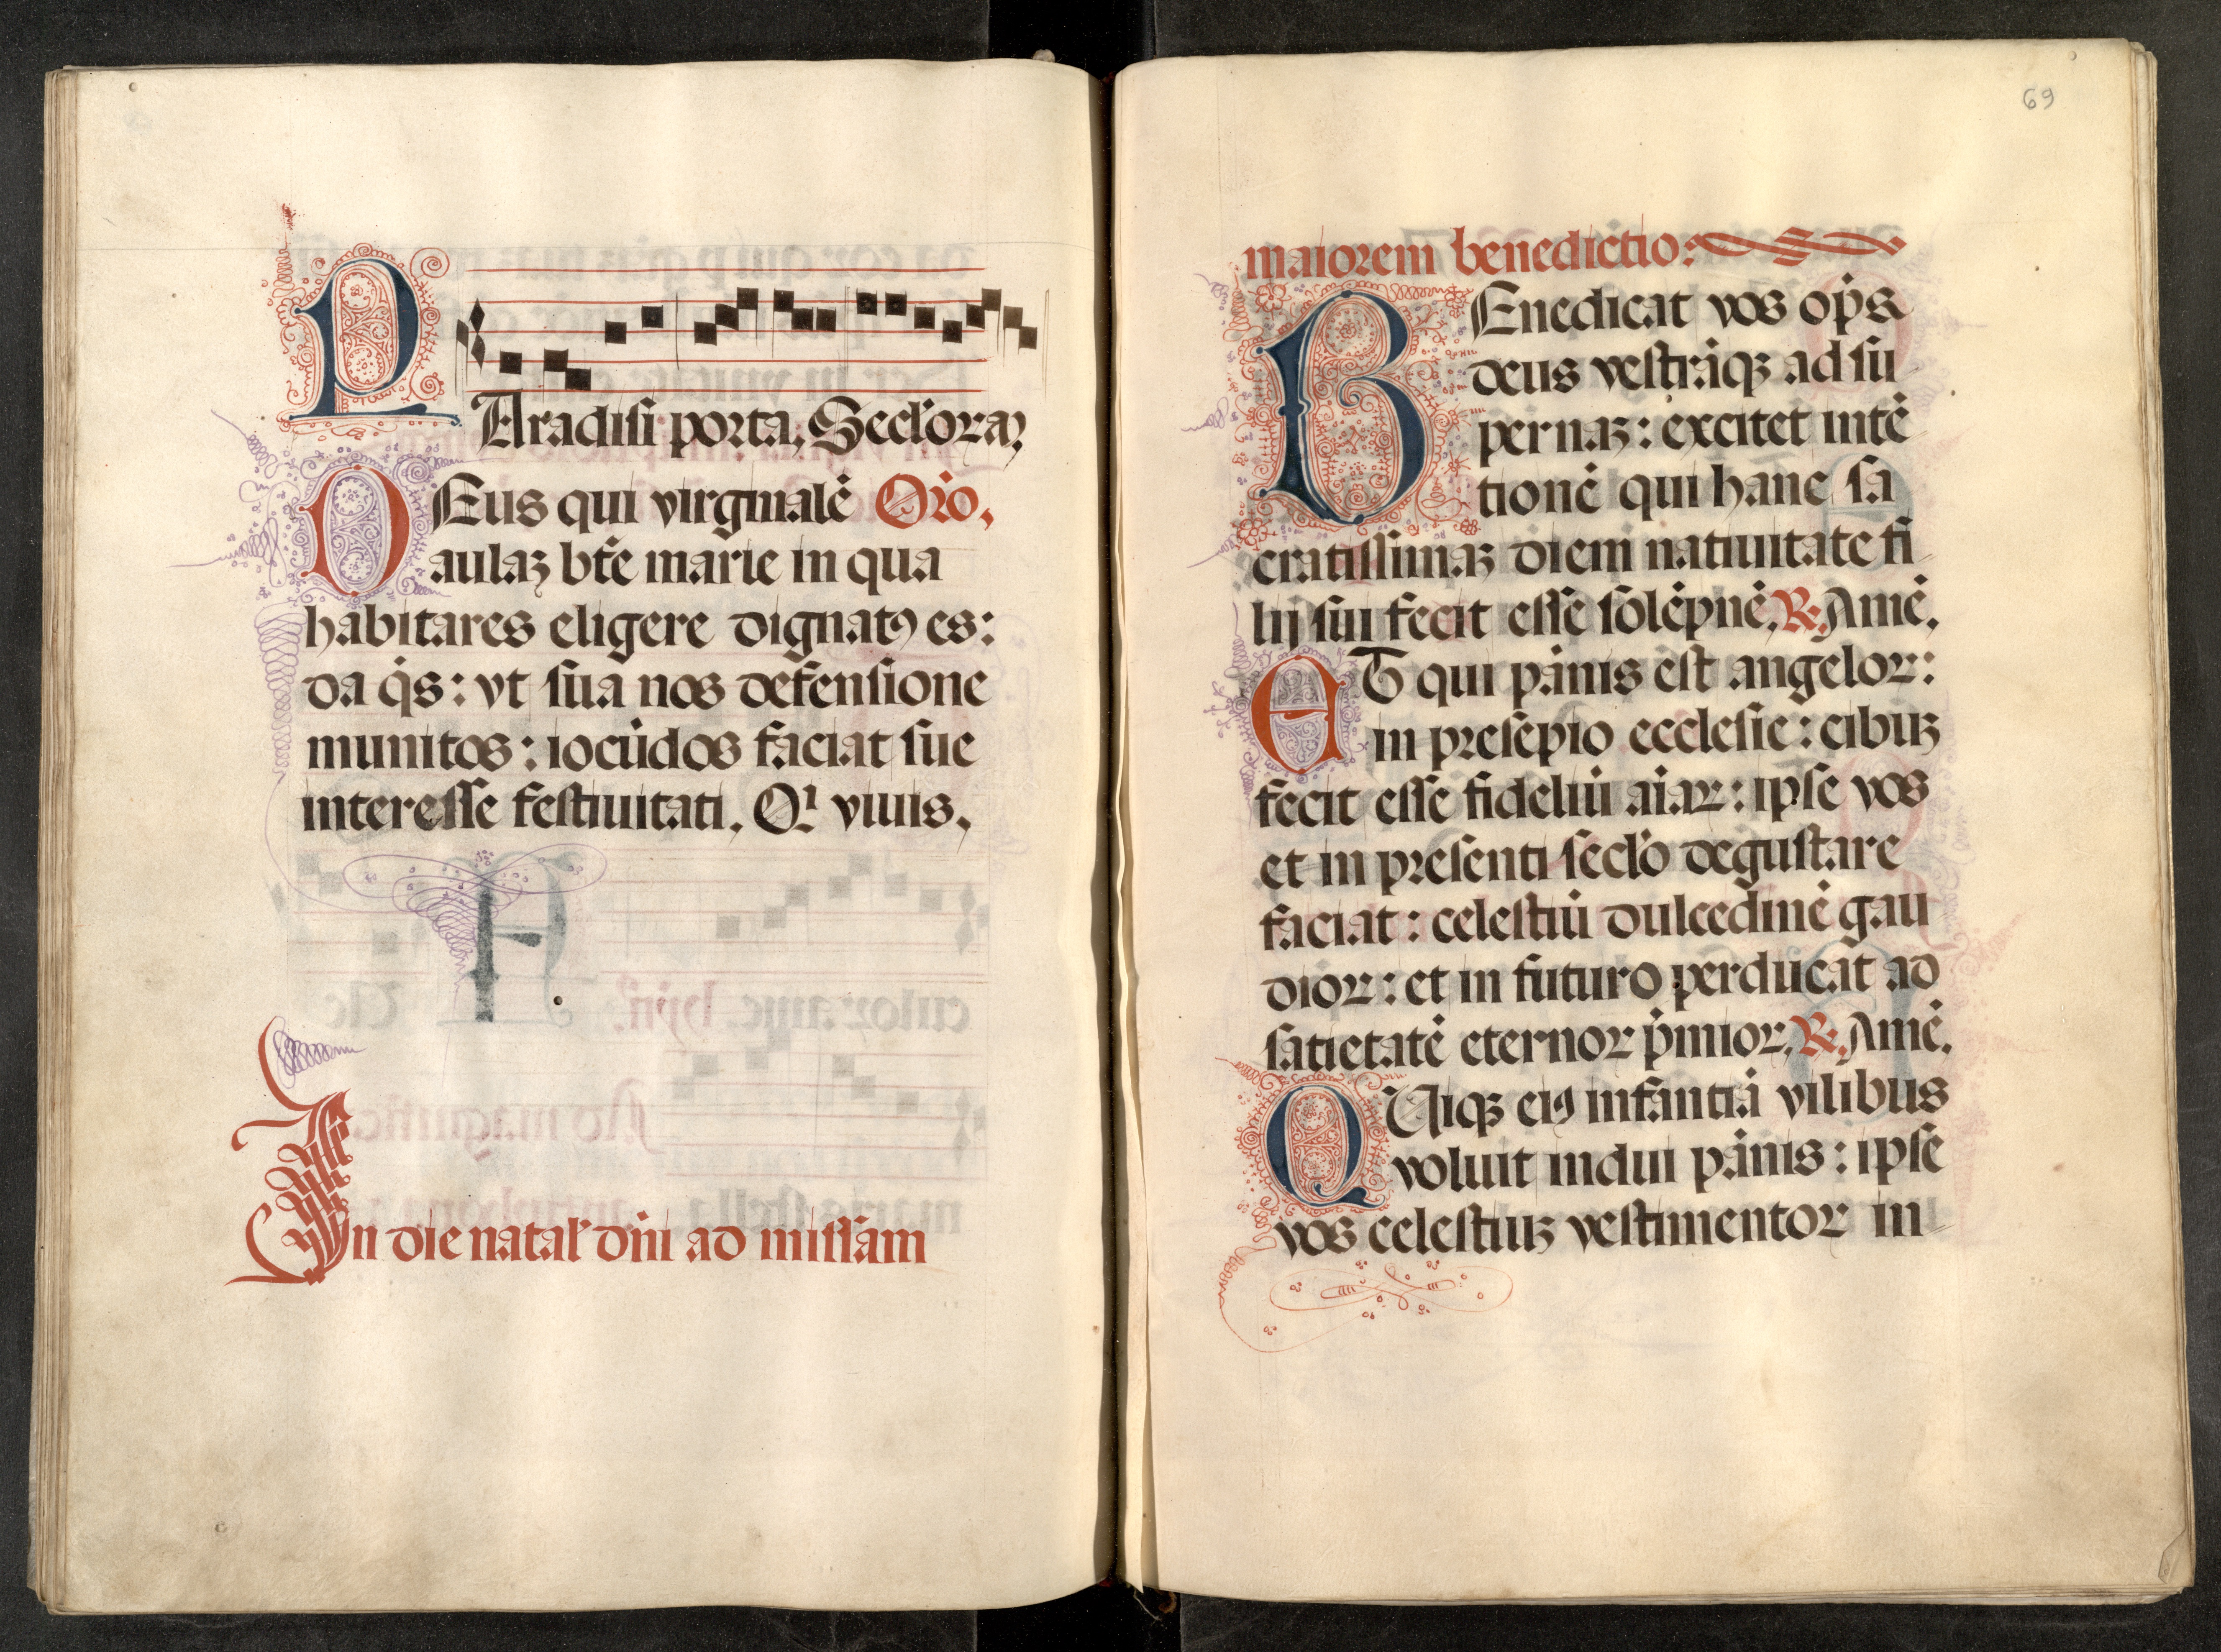 PAradisi porta, Secl'oraꝫ
DEus qui virginalē Orō.
aulaꝫ btē marie in qua
habitares eligere dignatꝰ es:
da q̄s: vt sua nos defensione
munitos: iocūdos faciat sue
interesse festiuitati. Qi viuis.
In die natal' dnī ad missam
69
maiorem benedictio:
BEnedicat vos op̄s
deus vestrāqꝫ ad su
pernaꝫ: excitet intē
tionē qui hanc sa
cratissimaꝫ diem natiuitate fi
lij sui fecit esse solēpnē. ℟. Amē.
ET qui pānis est angeloꝝ:
in presepio ecclesie: cibuꝫ
fecit esse fideliū aiaꝝ: ipse vos
et in presenti secl'o degustare
faciat: celestiū dulcedinē gau
dioꝝ: et in futuro perducat ad
satietatē eternoꝝ p̄mioꝝ. ℟. Amē.
QUiqꝫ eiꝰ infantiā vilibus
voluit indui pānis: ipse
vos celestiuꝫ vestimentoꝝ in